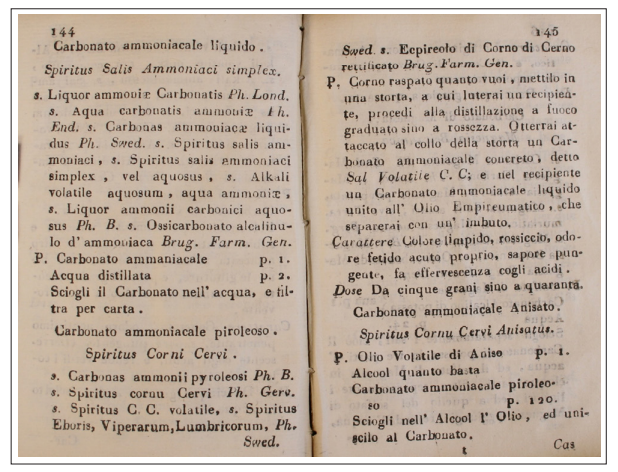 144
Carbonato ammoniacale liquido .
Spiritus Salis Ammoniaci simplex.
s. Liquor ammoniæ Carbonatis Ph. Lond.
s. Aqua carbonatis ammoniæ Ph.
End. s. Carbonas ammoniacæ liqui-
dus Ph. Swed. s. Spiritus salis am-
moniaci , s. Spiritus salis ammoniaci
simplex , vel aquosus , s. Alkali
volatile aquosum , aqua ammoniæ ,
s. Liquor ammonii carbonici aquo-
sus Ph. B. s. Ossicarbonato alcalinu-
lo d' ammoniaca Brug. Farm. Gen.
P. Carbonato ammaniacale p. 1.
Acqua distillata p. 2.
Sciogli il Carbonato nell' acqua, e fil-
tra per carta .
Carbonato ammoniacale piroleoso .
Spiritus Corni Cervi .
s. Carbonas ammonii pyroleosi Ph. B.
s. Spiritus cornu Cervi Ph. Gerv.
s. Spiritus C. C. volatile, s. Spiritus
Eboris, Viperarum, Lumbricorum, Ph.
Swed.
145
Swed. s. Ecpireolo di Corno di Cerno
rettificato Brug. Farm. Gen.
P. Corno raspato quanto vuoi , mettilo in
una storta, a cui luterai un recipien-
te, procedi alla distillazione a fuoco
graduato sino a rossezza. Otterrai at-
taccato al collo della storta un Car-
bonato ammoniacale concreto, detto
Sal Volatile C. C; e nel recipiente
un Carbonato ammoniacale liquido
unito all' Olio Empireumatico , che
separerai con un' imbuto.
Carattere Colore limpido, rossiccio, odo-
re fetido acuto proprio, sapore pun-
gente, fa effervescenza cogli acidi .
Dose Da cinque grani sino a quaranta.
Carbonato ammoniacale Anisato .
Spiritus Cornu Cervi Anisatus.
P. Olio Volatile di Aniso p. 1.
Alcool quanto basta
Carbonato ammoniacale piroleo-
so p. 120.
Sciogli nell' Alcool l' Olio , ed uni-
scilo al Carbonato .
t Cas